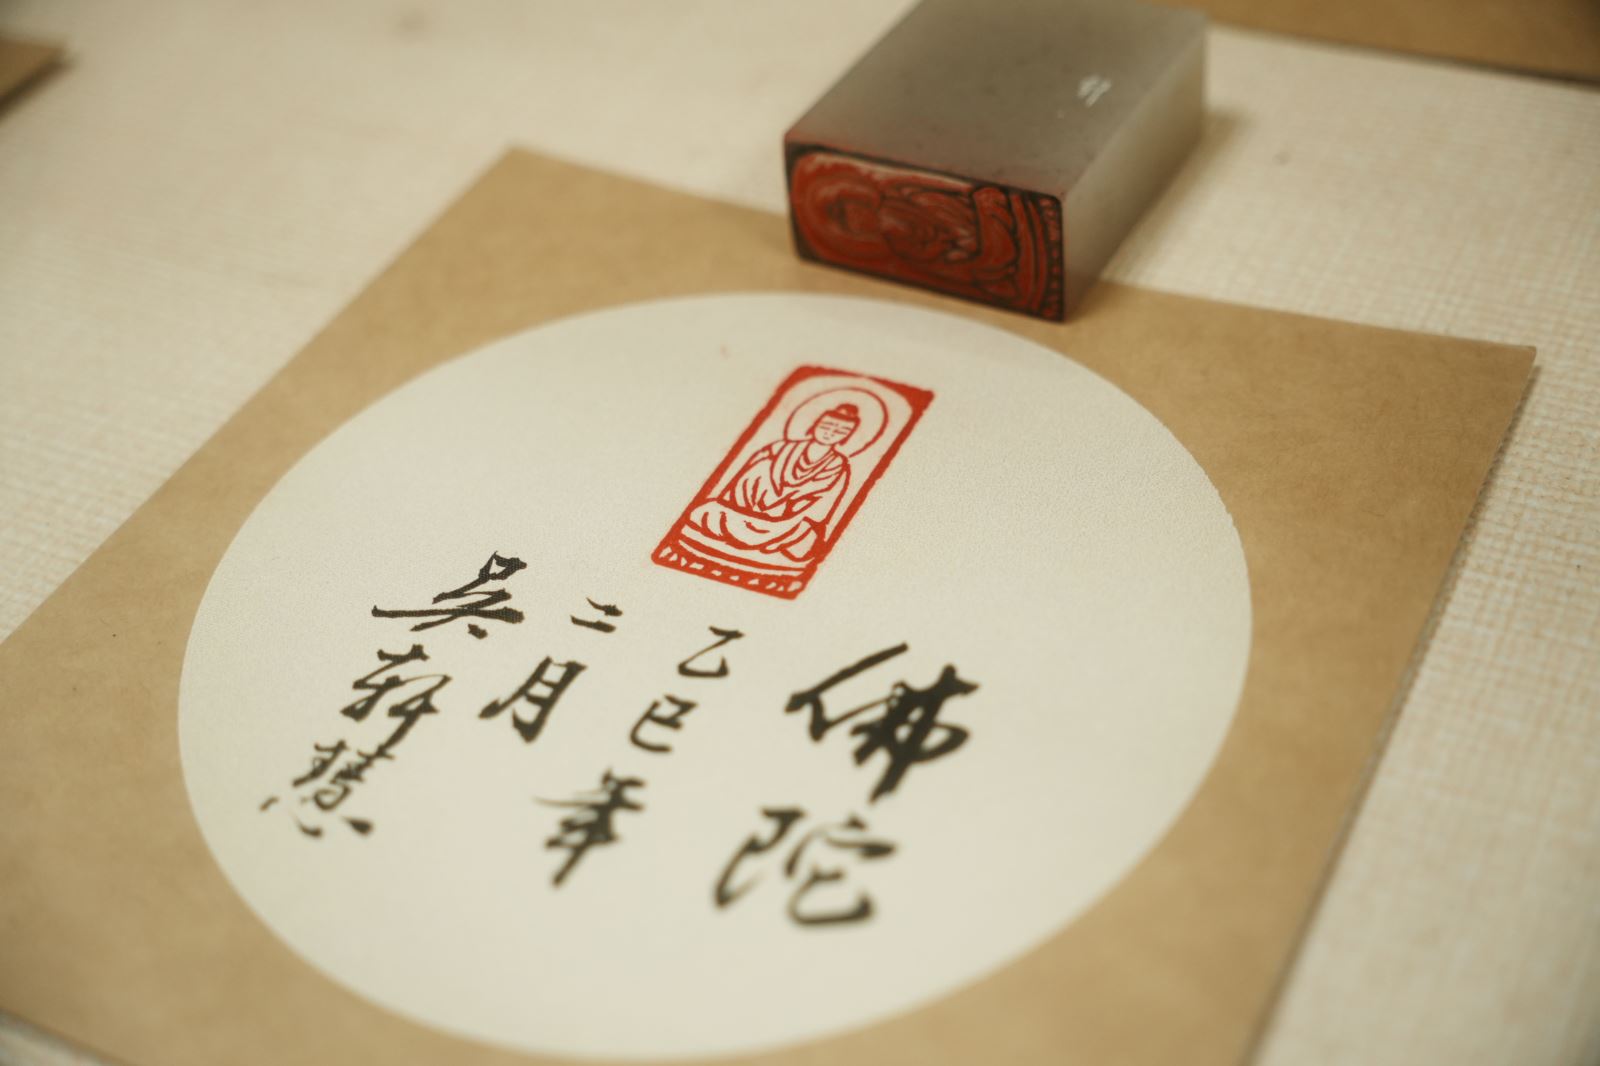 佛陀
乙巳年
二月
吴轩慧